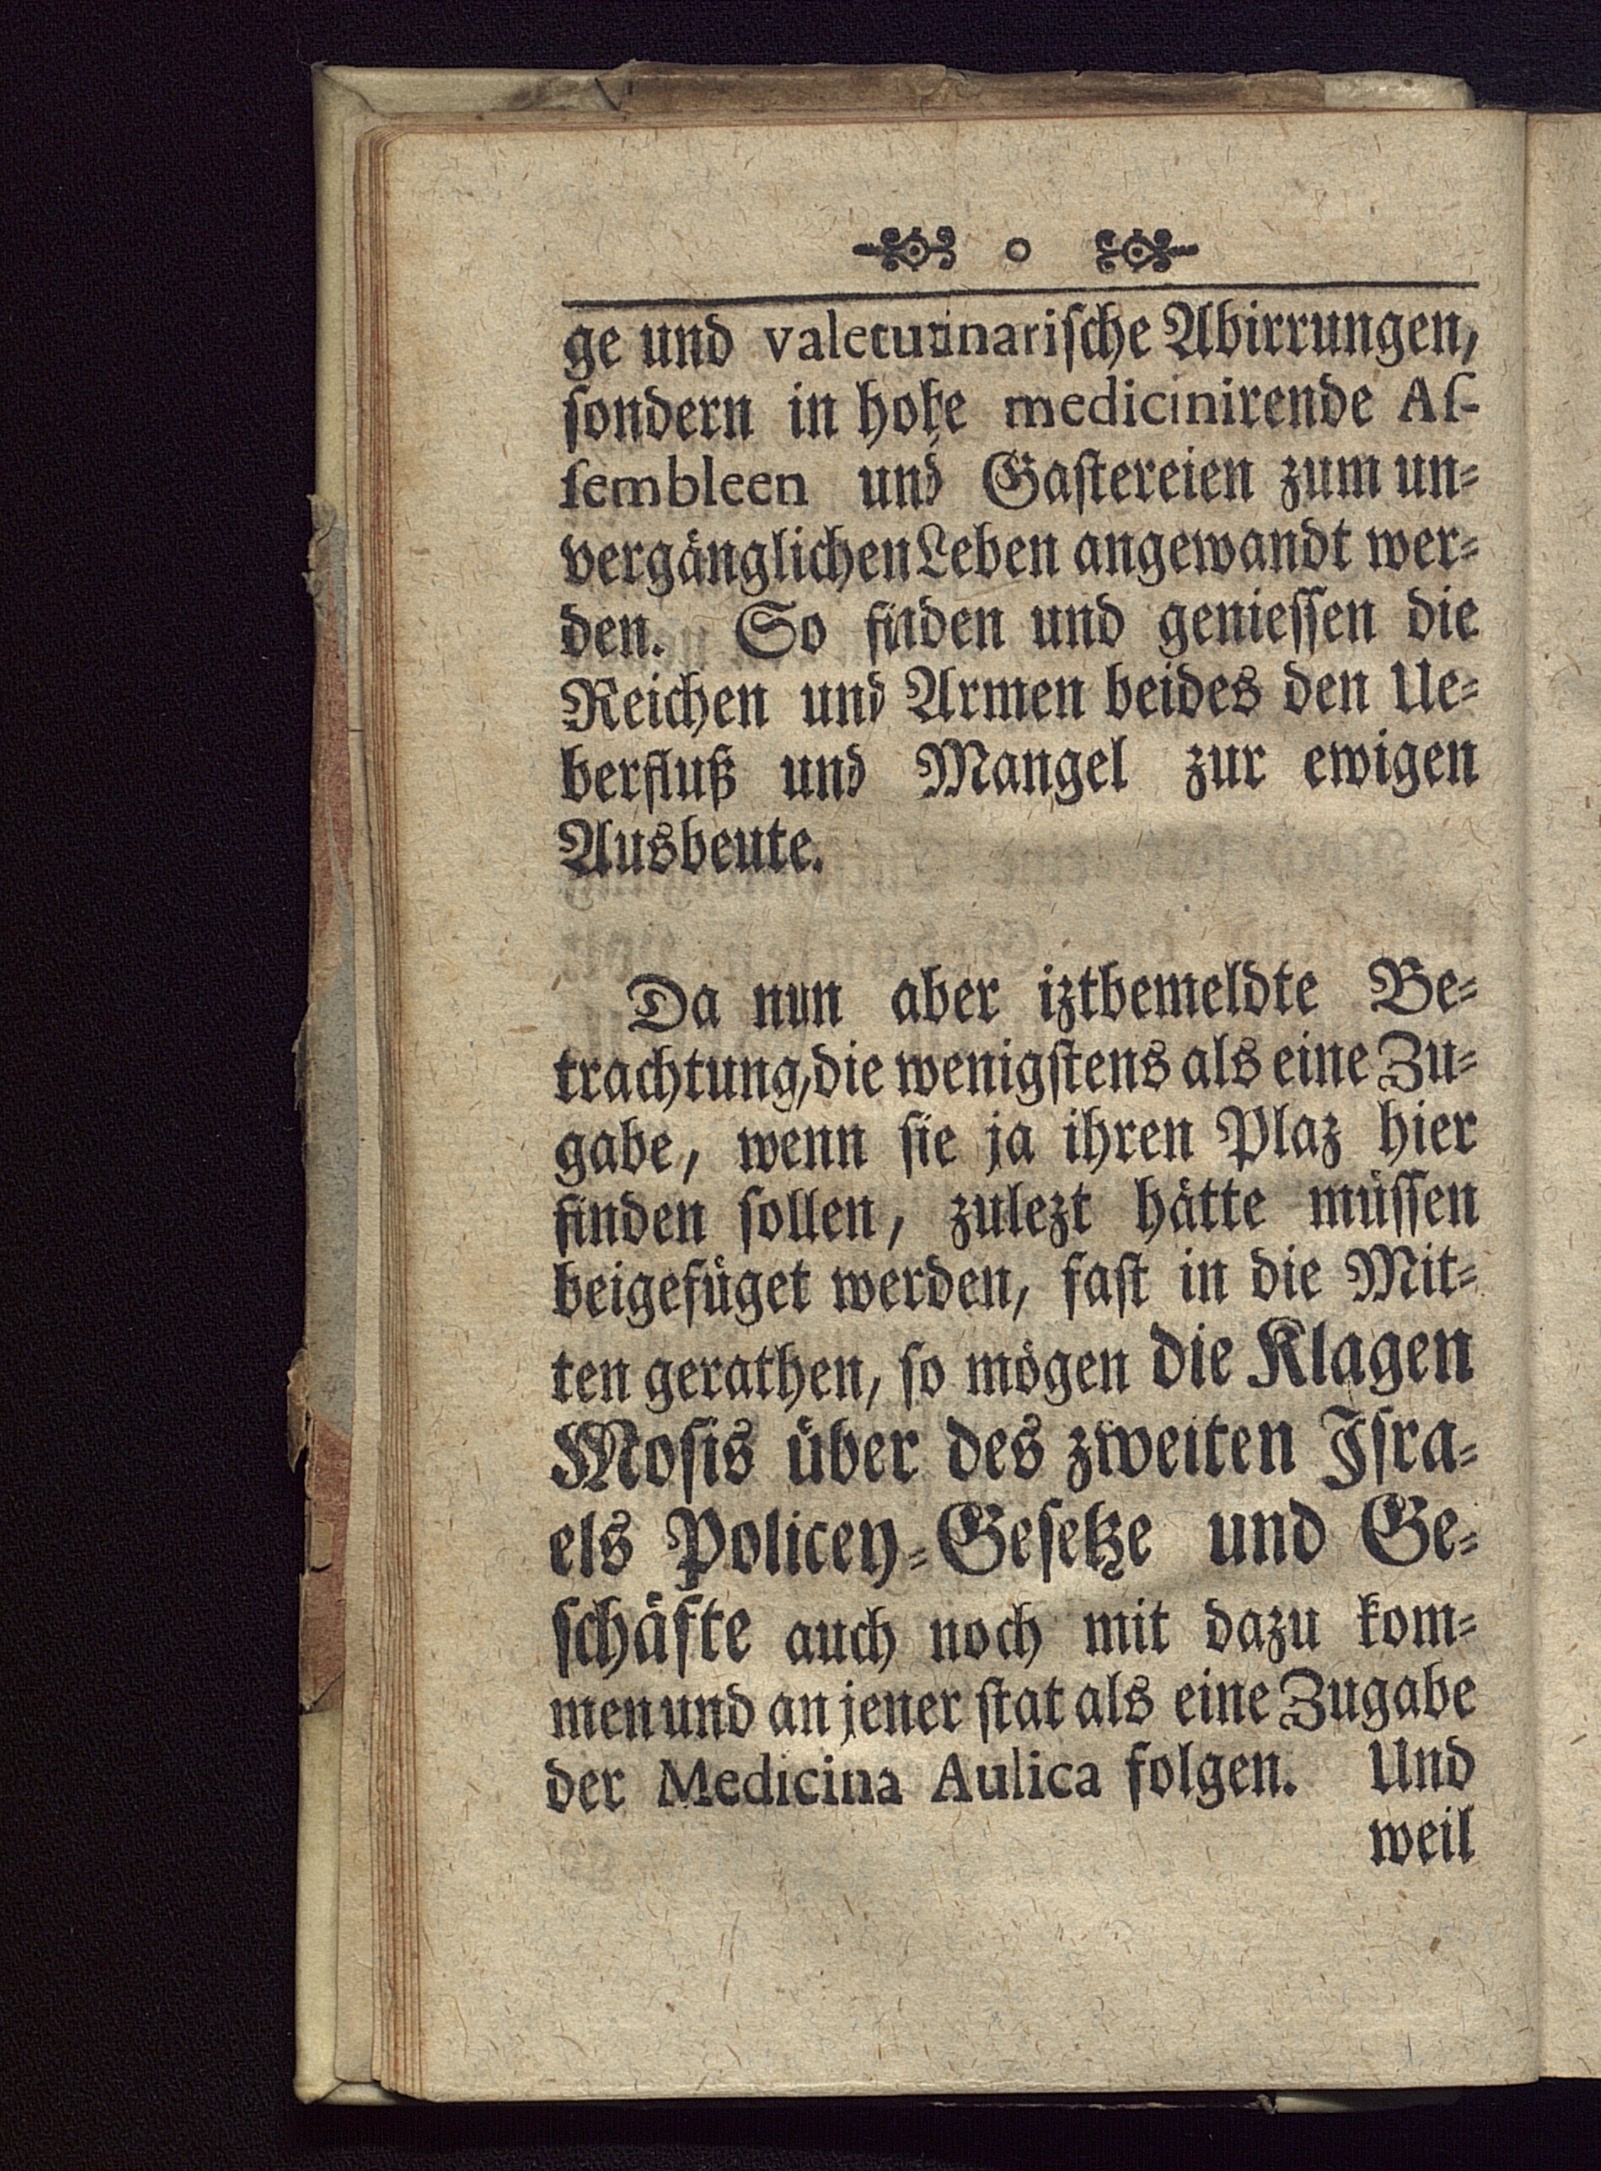 ge und valetudinariſche Abirrungen,
ſondern in hohe medicinirende Aſ-
ſembleen und Gaſtereien zum un⸗
vergänglichen Leben angewandt wer⸗
den. So finden und genieſſen die
Reichen und Armen beides den Ue⸗
berfluß und Mangel zur ewigen
Ausbeute.
Da nun aber iztbemeldte Be⸗
trachtung, die wenigſtens als eine Zu⸗
gabe, wenn ſie ja ihren Plaz hier
finden ſollen, zulezt hätte müſſen
beigefüget werden, faſt in die Mit⸗
ten gerathen, ſo mögen die Klagen
Moſis über des zweiten Iſra⸗
els Policey⸗Geſetze und Ge⸗
ſchäfte auch noch mit dazu kom⸗
men und an jener ſtat als eine Zugabe
der Medicina Aulica folgen. Und
weil